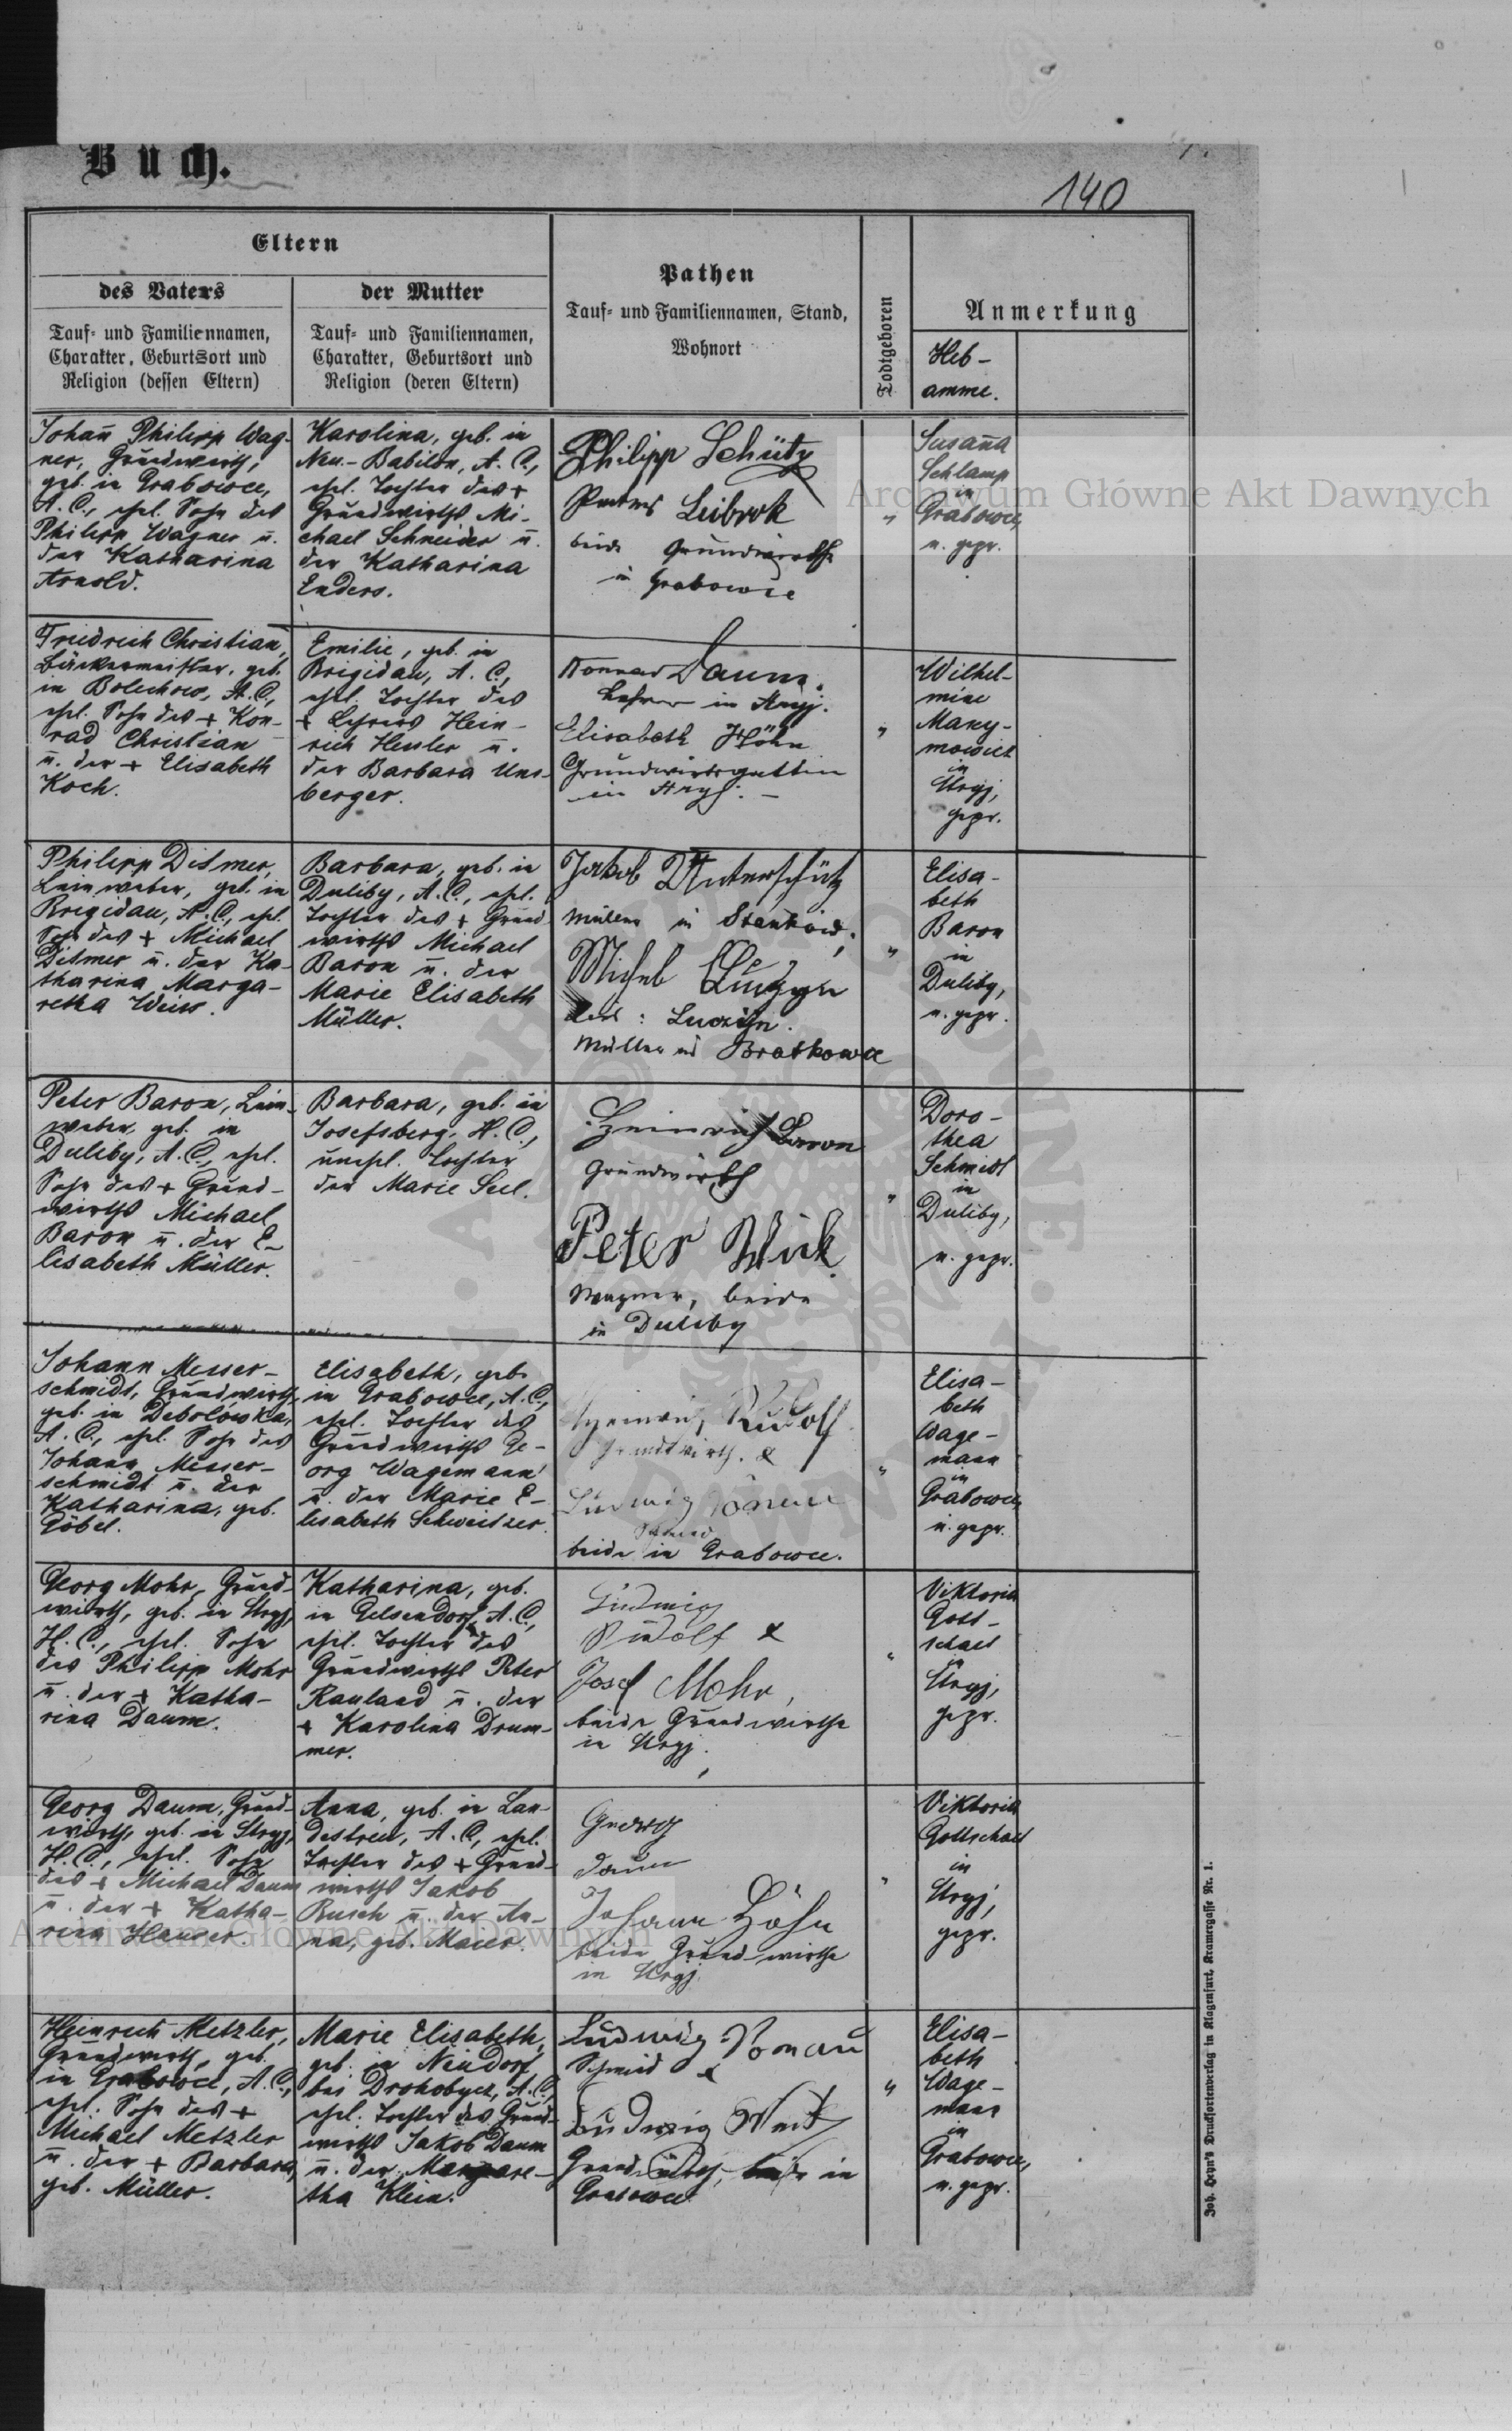 Buch.
140
Eltern
des Vaters
Tauf- und Familiennamen,
Charakter, Geburtsort und
Religion (dessen Eltern)
der Mutter
Tauf- und Familiennamen,
Charakter, Geburtsort und
Religion (deren Eltern)
Pathen
Tauf- und Familiennamen, Stand,
Wohnort
Todtgeboren
Anmerkung
Heb-
amme.
Johan̄ Philipp Wag-
ner, Grundwirth,
geb. in Grabowce,
A. C., ehel. Sohn des
Philipp Wagner u.
der Katharina
Arnold.
Karolina, geb. in
Neu-Babilon, A. C.,
ehel. Tochter des +
Grundwirths Mi-
chael Schneider u.
der Katharina
Enders.
Philipp Schütz
Leibrok
beide Grundwirthe
in Grabowce
"
Susan̄a
Schlamp
in
Grabowce,
n. gepr.
Friedrich Christian,
Bäckermeister, geb.
in Bolechow, A. C.,
ehel. Sohn des + Kon-
rad Christian
u. der + Elisabeth
Koch.
Emilie, geb. in
Brigidau, A. C.,
ehel. Tochter des
+ Lehrers Hein-
rich Hessler u.
der Barbara Uns-
berger.
Konrad Daum.
Lehrer in Stryj.
Elisabeth Höhn
Grundwirtsgattin
in Stryj. -
"
Wilhel-
mine
Many-
mowicz
in
Stryj,
gepr.
Philipp Ditmer,
Leinweber, geb. in
Brigidau, A. C., ehel.
Sohn des + Michael
Ditmer u. der Ka-
tharina Marga-
retha Weiss.
Barbara, geb. in
Duliby, A. C., ehel.
Tochter des + Grund-
wirths Michael
Baron u. der
Marie Elisabeth
Müller.
Jakob Unterschütz
Müller in Stankow,
Michel
Luczyn.
Müller in Bratkowce
"
Elisa-
beth
Baron
in
Duliby,
n. gepr.
Peter Baron, Lein-
weber, geb. in
Duliby, A. C., ehel.
Sohn des + Grund-
wirths Michael
Baron u. der E-
lisabeth Müller.
Barbara, geb. in
Josefsberg, H. C.,
unehel. Tochter
der Marie Seel.
Heinrich Baron
Grundwirth
Peter Wick
Wagner, beide
in Duliby
"
Doro-
thea
Schmidt
in
Duliby,
n. gepr.
Johann Messer-
schmidt, Grundwirth,
geb. in Debolówka,
A. C., ehel. Sohn des
Johann Messer-
schmidt u. der
Katharina, geb.
Göbel.
Elisabeth, geb.
in Grabowce, A. C.,
ehel. Tochter des
Grundwirths Ge-
org Wagemann
u. der Marie E-
lisabeth Schweitzer.
Heinrich Rudolf
Grundwirth. &
Ludwig
Schmied
beide in Grabowce.
"
Elisa-
beth
Wage-
mann
in
Grabowce,
n. gepr.
Georg Mohr, Grund-
wirth, geb. in Stryj,
H. C., ehel. Sohn
des Philipp Mohr
u. der + Katha-
rina Daum.
Katharina, geb.
in Gelsendorf, A. C.,
ehel. Tochter des
Grundwirths Peter
Rauland u. der
+ Karolina Drum-
mer.
Ludwig
Rudolf &
Josef Mohr,
beide Grundwirthe
in Stryj.
"
Viktoria
Gott-
schall
in
Stryj,
gepr.
Georg Daum, Grund-
wirth, geb. in Stryj,
H. C., ehel. Sohn
des + Michael Daum
u. der + Katha-
rina Hauser.
Anna, geb. in Lan-
destreu, A. C., ehel.
Tochter des + Grund-
wirths Jakob
Busch u. der An-
na, geb. Maier.
Georg
Daum
Johann Höhn
beide Grundwirthe
in Stryj.
"
Viktoria
Gottschall
in
Stryj,
gepr.
Heinrich Metzler,
Grundwirth, geb.
in Grabowce, A. C.,
ehel. Sohn des +
Michael Metzler
u. der + Barbara,
geb. Müller.
Marie Elisabeth,
geb. in Neudorf
bei Drohobycz, A. C.,
ehel. Tochter des Grund-
wirths Jakob Daum
u. der Margare-
tha Klein.
Ludwig Vonau
Schmied &
Ludwig
Grundwirth, beide in
Grabowce
"
Elisa-
beth
Wage-
mann
in
Grabowce,
n. gepr.
Joh. Heyn's Drucksortenverlag in Klagenfurt, Kramergasse Nr. 1.
Archiwum Główne Akt Dawnych
Archiwum Główne Akt Dawnych